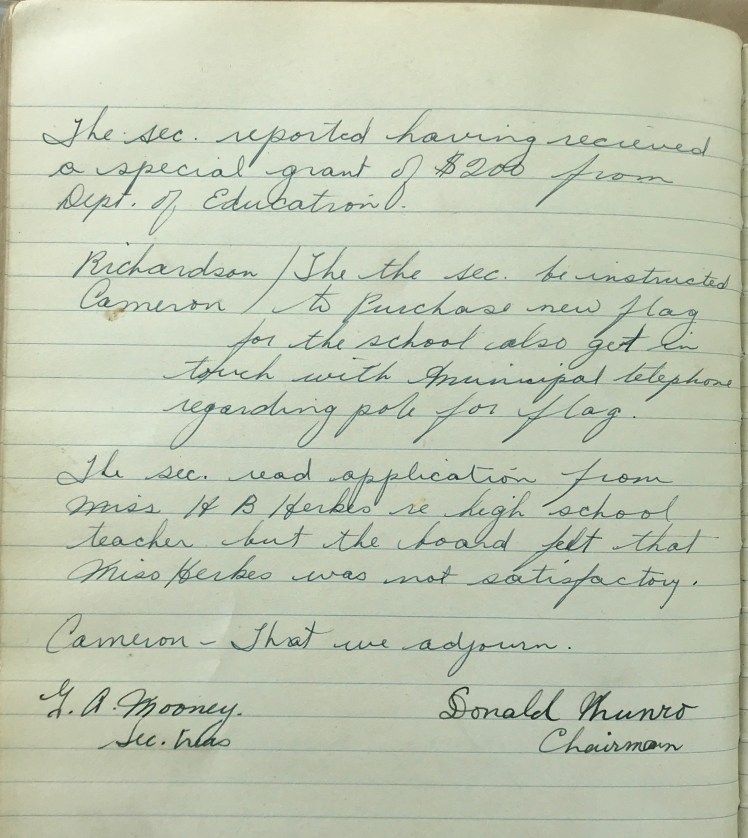 The sec. reported having recieved
a special grant of $200 from
Dept. of Education.
Richardson / The the sec. be instructed
Cameron / to purchase new flag
for the school also get in
touch with Municipal telephone
regarding pole for flag.
The sec. read application from
Miss H B Herkes re high school
teacher but the board felt that
Miss Herkes was not satisfactory.
Cameron - That we adjourn.
G. A. Mooney. Donald Munro
Sec. Treas Chairman